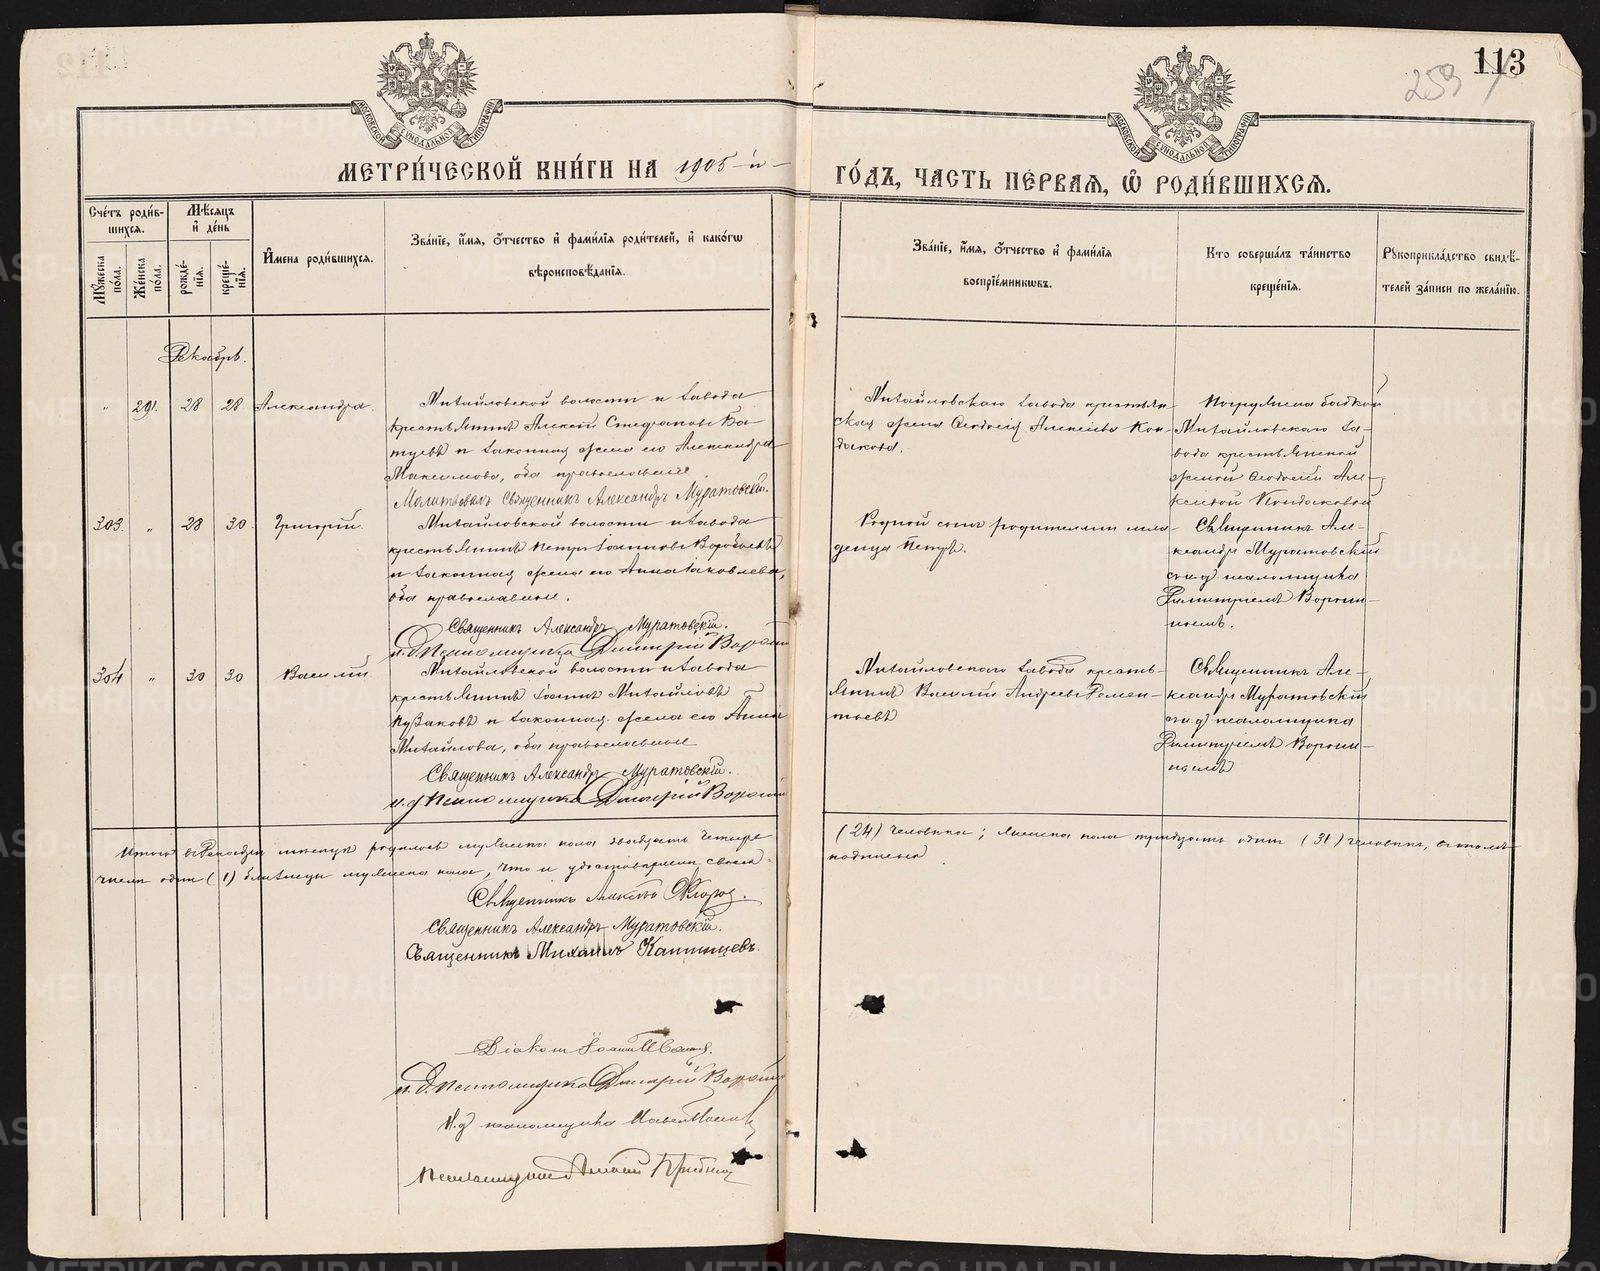 113
259
МОСКОВСКОЙ СѴНОДАЛЬНОЙ ТИПОГРАФІИ
МОСКОВСКОЙ СѴНОДАЛЬНОЙ ТИПОГРАФІИ
МЕТРИ́ЧЕСКОЙ КНИ́ГИ НА 1905-й
ГО́ДЪ, ЧАСТЬ ПЕ́РВАѦ, Ѡ҆ РОДИ́ВШИХСѦ.
Сче́тъ роди́в-
шихсѧ.
Мꙋ́жеска по́ла.
Же́нска по́ла.
Мѣ́сѧцъ
и҆ де́нь
рожде́-
нїѧ.
креще́-
нїѧ.
И҆мена роди́вшихсѧ.
Зва́нїе, и҆́мѧ, ѻ҆́тчество и҆ фами́лїѧ роди́телей, и҆ како́гѡ
вѣроисповѣ́данїѧ.
Зва́нїе, и҆́мѧ, ѻ҆́тчество и҆ фами́лїѧ
воспрїе́мникѡвъ.
Кто соверша́лъ та́инство
креще́нїѧ.
Рꙋкоприкла́дство свидѣ́-
телей за́писи по жела́нїю.
Декабрь.
" 291. 28 28 Александра.
Михайловской волости и завода
крестьянинъ Алексій Стефановъ Ба-
туевъ и законная жена его Александра
Максимова, оба православные.
Молитвовалъ Священникъ Александръ Муратовскій.
Михайловскаго завода крестьян-
ская жена Ѳеодосія Алексѣева Кон-
дакова.
Погружена бабкой
Михайловскаго за-
вода крестьянской
женой Ѳеодосіей Але-
ксѣевой Кондаковой
303. " 28 30. Григорій.
Михайловской волости и завода
крестьянинъ Петръ Іоанновъ Воробьевъ
и законная жена его Анна Іаковлева,
оба православные.
Священникъ Александръ Муратовскій.
и. д. Псаломщика Димитрій
Родной сынъ родителей мла-
денца Петръ.
Священникъ Але-
ксандръ Муратовскій
съ и. д. псаломщика
304 " 30 30 Василій
Михайловской волости и завода
крестьянинъ Іоаннъ Михайловъ
Пузаковъ и законная жена его Анна
Михайлова, оба православные
Священникъ Александръ Муратовскій.
и. д. Псаломщика Димитрій
Михайловскаго завода кресть-
янинъ Василій Андреевъ Ремен-
тьевъ
Священникъ Але-
ксандръ Муратовскій
съ и. д. псаломщика
Итого въ Декабрѣ мѣсяцѣ родилось мужеска пола двадцать четыре
(24) человѣка; женска пола тридцать одинъ (31) человѣкъ, въ томъ
числѣ одни (1) близнецы мужеска пола, что и удостовѣряемъ своею
подписью.
Священникъ
Священникъ Александръ Муратовскій.
Священникъ Михаилъ
Діаконъ Іоаннъ
и. д. Псаломщика Димитрій
И. д. псаломщика
Псаломщикъ
METRIKI.GASO-URAL.RU